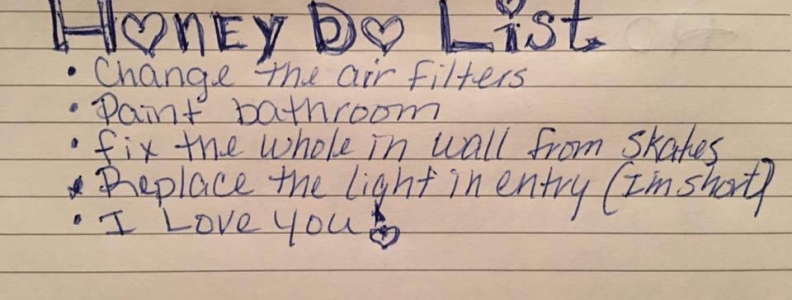 Honey Do List
• Change the air filters
• Paint bathroom
• fix the whole in wall from skates
• Replace the light in entry (I'm short)
• I Love you!